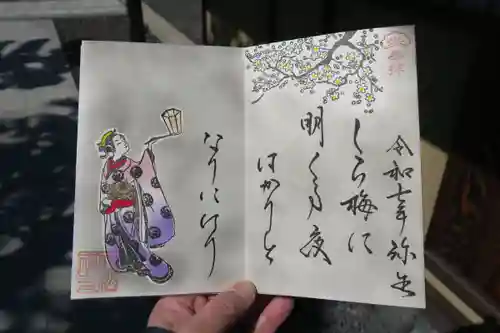 奉拝
令和七年 弥生
しら梅に
明くる夜
はかりと
なりにけり